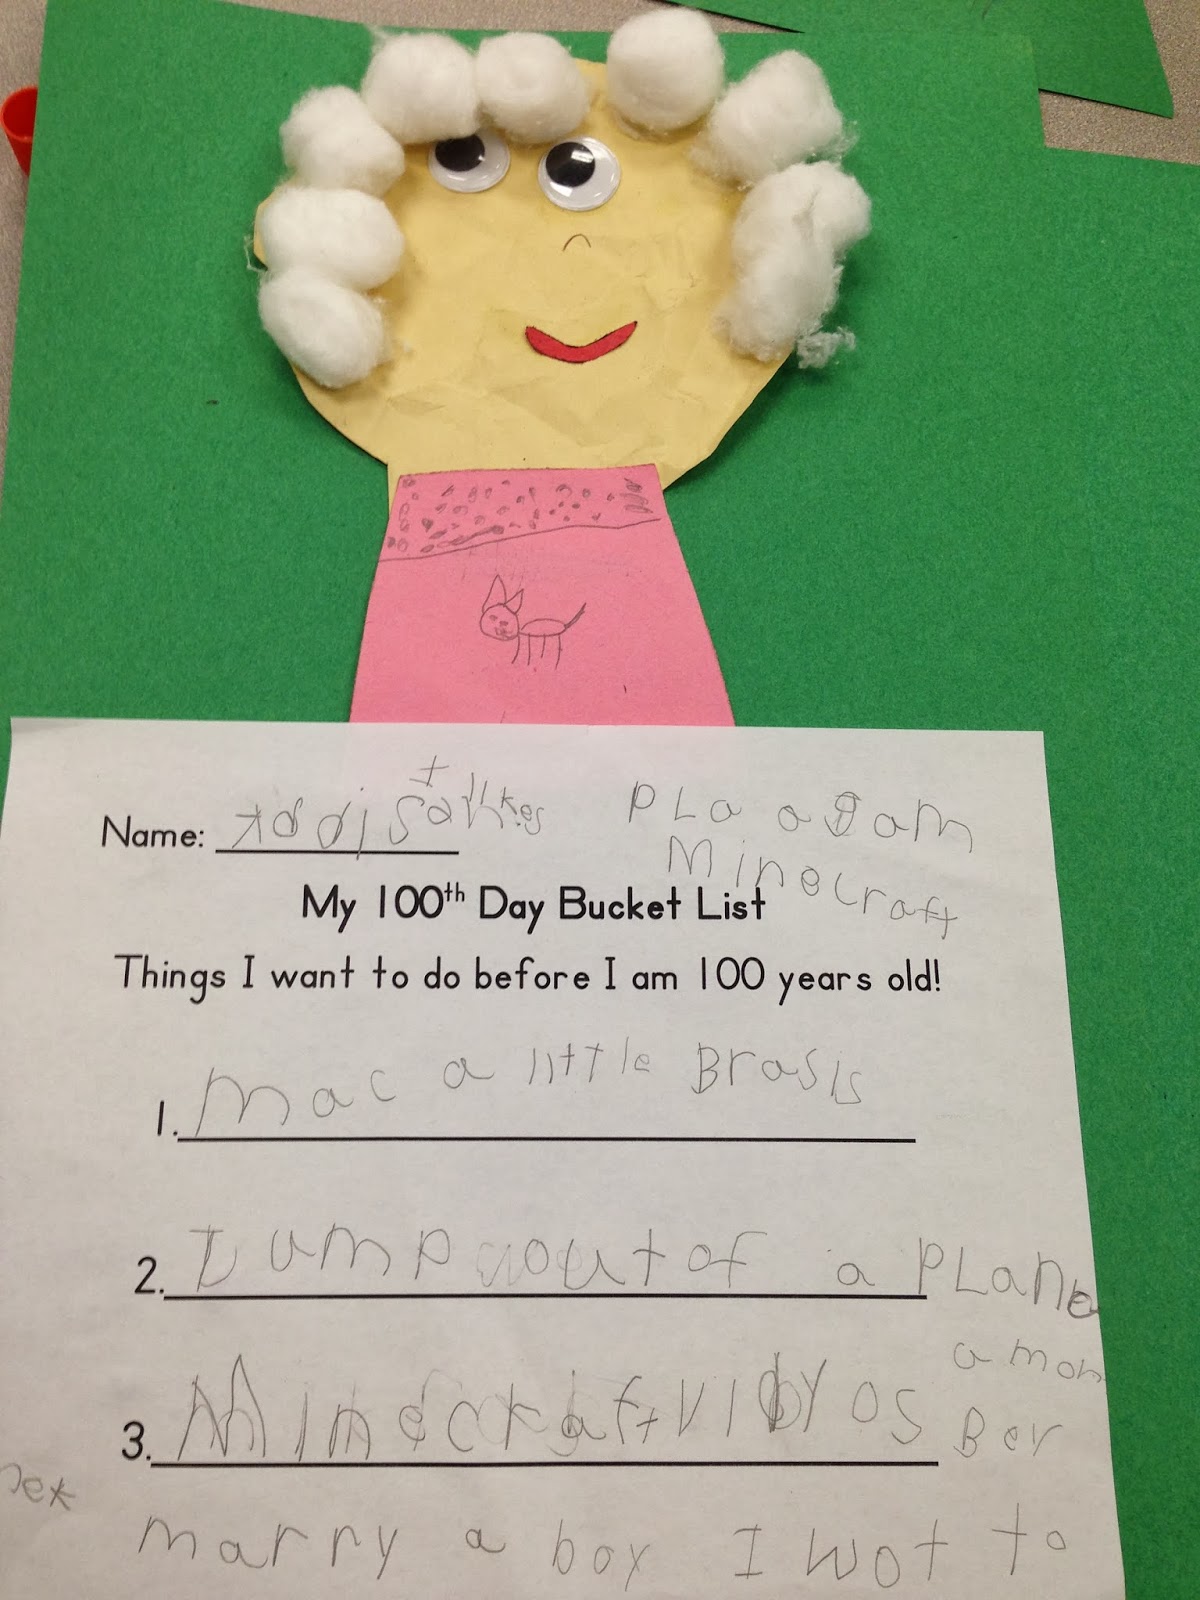 Name: Addis
PLa a Gam
Minecraft
My 100th Day Bucket List
Things I want to do before I am 100 years old!
1. mac a little Brasis
2. Jump out of a PLane
a mon
3. Minecraft vidyos Ber
marry a boy I wot to